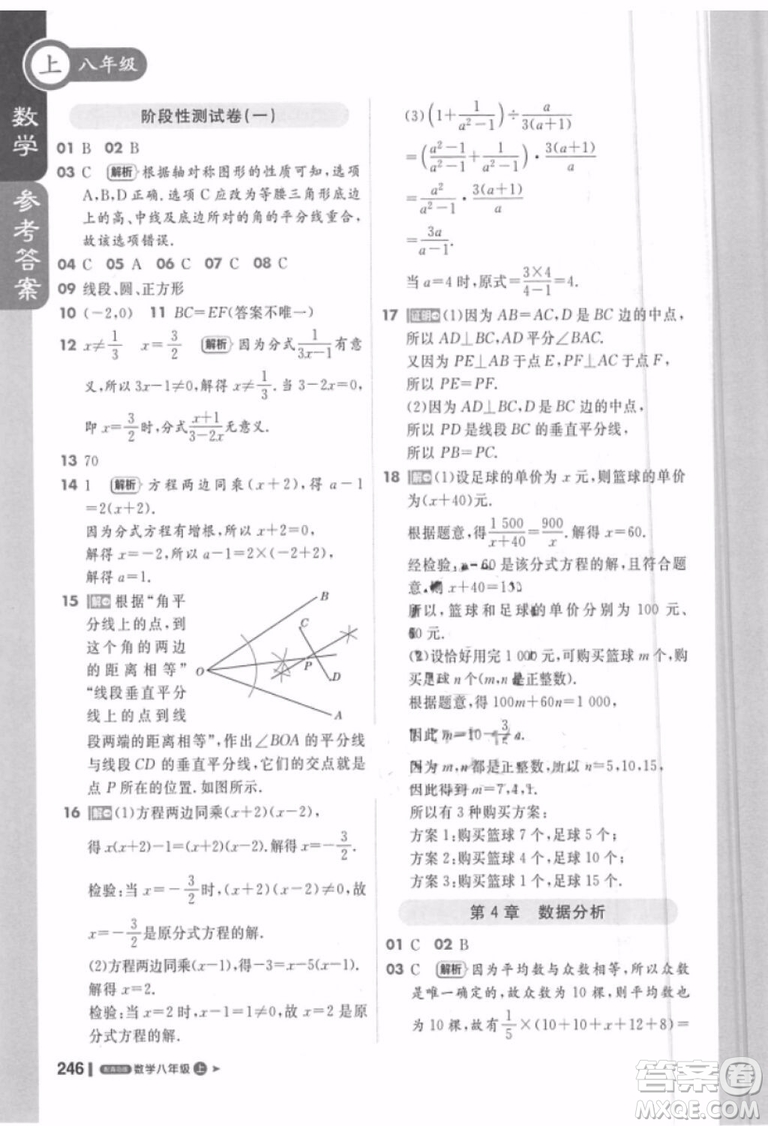 上 八年级
数学
参考答案
阶段性测试卷(一)
01 B 02 B
03 C 解析 根据轴对称图形的性质可知,选项
A,B,D正确.选项C应改为等腰三角形底边
上的高、中线及底边所对的角的平分线重合,
故该选项错误.
04 C 05 A 06 C 07 C 08 C
09 线段、圆、正方形
10 (-2,0) 11 BC=EF(答案不唯一)
12 x≠1/3 x=3/2 解析 因为分式1/(3x-1)有意
义,所以3x-1≠0,解得x≠1/3.当3-2x=0,
即x=3/2时,分式(x+1)/(3-2x)无意义.
13 70
14 1 解析 方程两边同乘(x+2),得a-1
=2(x+2).
因为分式方程有增根,所以x+2=0,
解得x=-2,所以a-1=2×(-2+2),
解得a=1.
15 解 根据“角平
分线上的点,到
这个角的两边
的距离相等”
“线段垂直平分
线上的点到线
段两端的距离相等”,作出∠BOA的平分线
与线段CD的垂直平分线,它们的交点就是
点P所在的位置.如图.
B
C
O
P
D
A
16 解 (1)方程两边同乘(x+2)(x-2),
得x(x+2)-1=(x+2)(x-2).解得x=-3/2.
检验:当x=-3/2时,(x+2)(x-2)≠0,故x
=-3/2是原分式方程的解.
(2)方程两边同乘(x+2)(x-2),得x+2=4.
解得x=2.
检验:当x=2时,(x+2)(x-2)=0,故原分
式方程无解.
246 数学八年级 上
(3)(1+1/(a²-1))÷a/(3(a+1))
=(a²-1/(a²-1)+1/(a²-1))·3(a+1)/a
=a²/(a²-1)·3(a+1)/a
=3a/(a-1).
当a=4时,原式=(3×4)/(4-1)=4.
17 证明 (1)因为AB=AC,D是BC边的中点,
所以AD⊥BC,AD平分∠BAC.
又因为PE⊥AB于点E,PF⊥AC于点F,
所以PE=PF.
(2)因为AD⊥BC,D是BC边的中点,
所以PD是线段BC的垂直平分线,
所以PB=PC.
18 解 (1)设足球的单价为x元,则篮球的单价
为(x+40)元.
根据题意,得1 500/(x+40)=900/x.解得x=60.
经检验,x=60是该分式方程的解,且符合题
意.则x+40=100.
所以,篮球和足球的单价分别为100元、
60元.
(2)设恰好用完1 000元,可购买篮球m个,购
买足球n个(m,n是正整数).
根据题意,得100m+60n=1 000,
因此m=10-
因为m,n都是正整数,所以n=5,10,15,
因此m=7,4,1.
所以有3种购买方案:
方案1:购买篮球7个,足球5个.
方案2:购买篮球4个,足球10个.
方案3:购买篮球1个,足球15个.
第4章 数据分析
01 C 02 B
03 C 解析 因为平均数与众数相等,所以众数
是唯一确定的,故众数为10棵,则平均数也
为10棵,故1/5×(10+10+x+12+8)=
答案圈
MXQE.COM